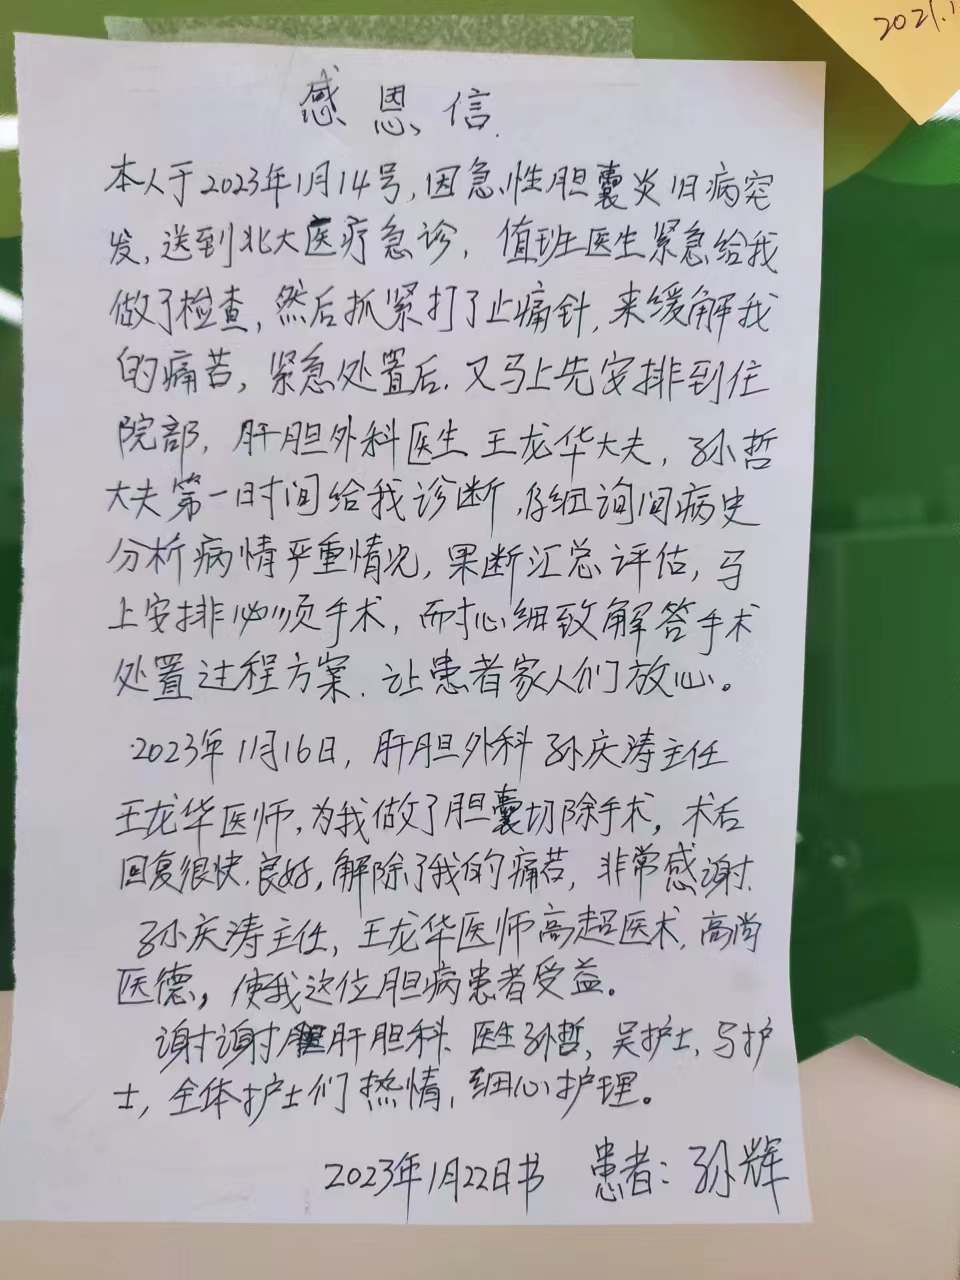 2021.1
感恩信.
本人于2023年11月14号,因急性胆囊炎旧病突
发,送到北大医疗急诊,值班医生紧急给我
做了检查,然后抓紧打了止痛针,来缓解我
的痛苦,紧急处置后.又马上先安排到住
院部,肝胆外科医生王龙华大夫,孙哲
大夫第一时间给我诊断,仔细询间病史
分析病情严重情况,果断汇总评估,马
上安排必须手术,耐心细致解答手术
处置过程方案.让患者家人们放心。
2023年11月16日,肝胆外科孙庆涛主任
王龙华医师,为我做了胆囊切除手术,术后
回复很快.良好,解除了我的痛苦,非常感谢.
孙庆涛主任,王龙华医师高超医术,高尚
医德,使我这位胆病患者受益。
谢谢肝胆科、医生孙哲,吴护士,马护
士,全体护士们热情,细心护理。
2023年11月22日书 患者:孙辉